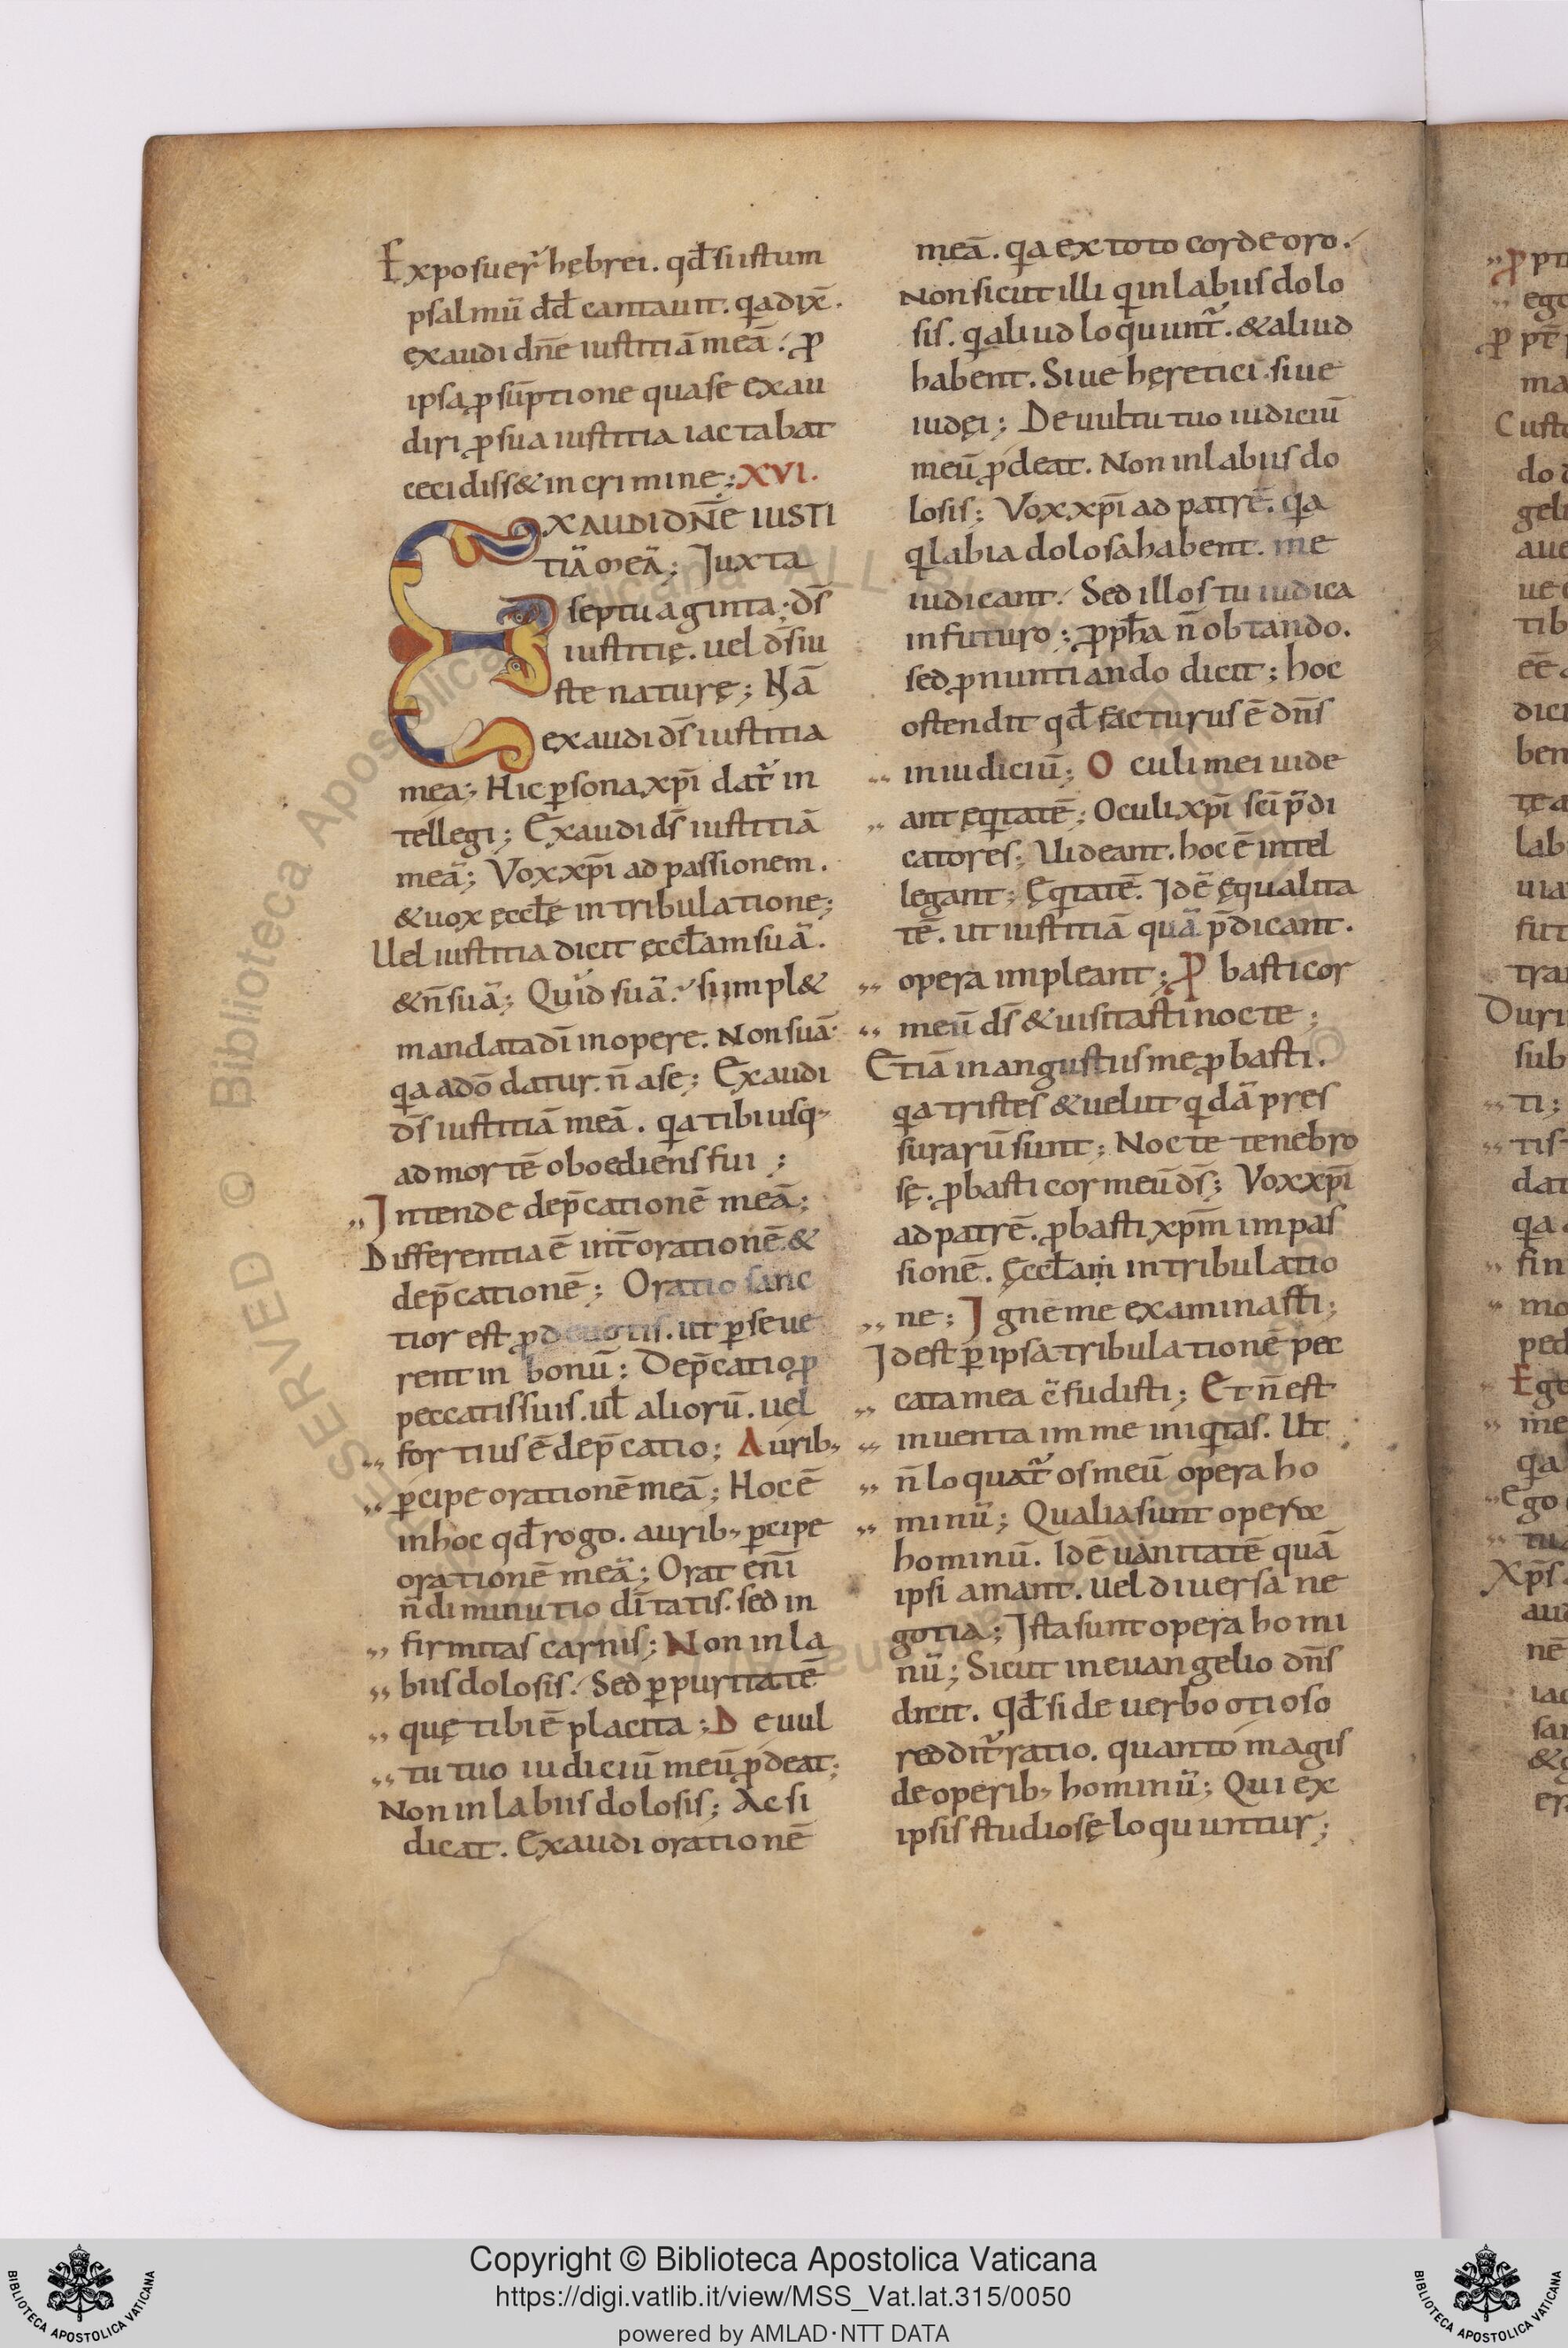 Exposuer̃ hębrei. qđ sui istum
psalmū dđ cantauit. qa dix̄.
exaudi dn̄e iustitiā meā. ꝓ
ipsa p̱sūptione qua se exau
diri ꝓ sua iustitia iactabat
cecidiss& in crimine; XVI.
EXAUDI DN̄E IUSTI
TIĀ MEĀ; Juxta
septuaginta; ds̄
iustitię. uel ds̄ iu
stę naturę; Nā
exaudi ds̄ iustitia
mea; Hic ꝑsona xp̄i dat̃ in
tellegi; Exaudi ds̄ iustitiā
meā; Vox xp̄i ad passionem.
& uox ęccłę in tribulatione;
Uel iustitia dicit ęccłam suā.
& n̄ suā; Quid suā. si impl&
mandata dī in opere. Non suā
qa a dō datur. n̄ a se; Exaudi
ds̄ iustitiā meā. qa tibi usq,
ad mortē oboediens fui;
,, Intende dep̄cationē meā;
Differentia ē int̄ orationē &
dep̄cationē; Oratio sanc
tior est ꝓ deuotis. ut ꝑseue
rent in bonū; Dep̄catio ꝓ
peccatis suis. uł aliorū. uel
,, fortius ē dep̄catio; Aurib,
,, ꝑcipe orationē meā; Hoc ē
in hoc qđ rogo. aurib, ꝑcipe
orationē meā; Orat enī
n̄ diminutio dītatis. sed in
,, firmitas carnis; Non in la
,, biis dolosis. Sed ꝑ puritatē
,, quę tibi ē placita; De uul
,, tu tuo iudiciū meū ꝓdeat;
Non in labiis dolosis; Ac si
dicat. Exaudi orationē
meā. qa ex toto corde oro.
Non sicut illi q in labiis dolo
sis. q aliud loquunt̃. & aliud
habent. Siue hęretici siue
iudęi; De uultu tuo iudiciū
meū ꝓdeat. Non in labiis do
losis; Vox xp̄i ad patrē. qa
q labia dolosa habent. me
iudicant. Sed illos tu iudica
in futuro; ꝓpħa n̄ obtando.
sed ꝓnuntiando dicit; hoc
ostendit qđ facturus ē dn̄s
,, in iudiciū; Oculi mei uide
,, ant ęqtatē; Oculi xp̄i sc̄i p̄di
catores; Uideant. hoc ē intel
legant; Ęqtatē. Idē ęqualita
tē. ut iustitiā quā p̄dicant.
,, opera impleant; Ꝓbasti cor
,, meū ds̄ & uisitasti nocte;
Etiā in angustiis me ꝓbasti.
qa tristes & uelut qdā pres
surarū sunt; Nocte tenebro
sę. ꝓbasti cor meū ds̄; Vox xp̄i
ad patrē. ꝓbasti xp̄m im pas
sionē. Ęccłam in tribulatio
,, ne; Igne me examinasti;
Id est ꝑ ipsa tribulationē pec
,, cata mea c̄fudisti; Et n̄ est
,, inuenta im me iniqtas. Ut
,, n̄ loquat̃ os meū opera ho
,, minū; Qualia sunt operae
hominū. Idē uanitatē quā
ipsi amant. uel diuersa ne
gotia; Ista sunt opera homi
nū; Sicut in euangelio dn̄s
dicit. qđ si de uerbo otioso
reddit̃ ratio. quanto magis
de operib, hominū; Qui ex
ipsis studiosę loquuntur;
Copyright © Biblioteca Apostolica Vaticana
https://digi.vatlib.it/view/MSS_Vat.lat.315/0050
powered by AMLAD·NTT DATA